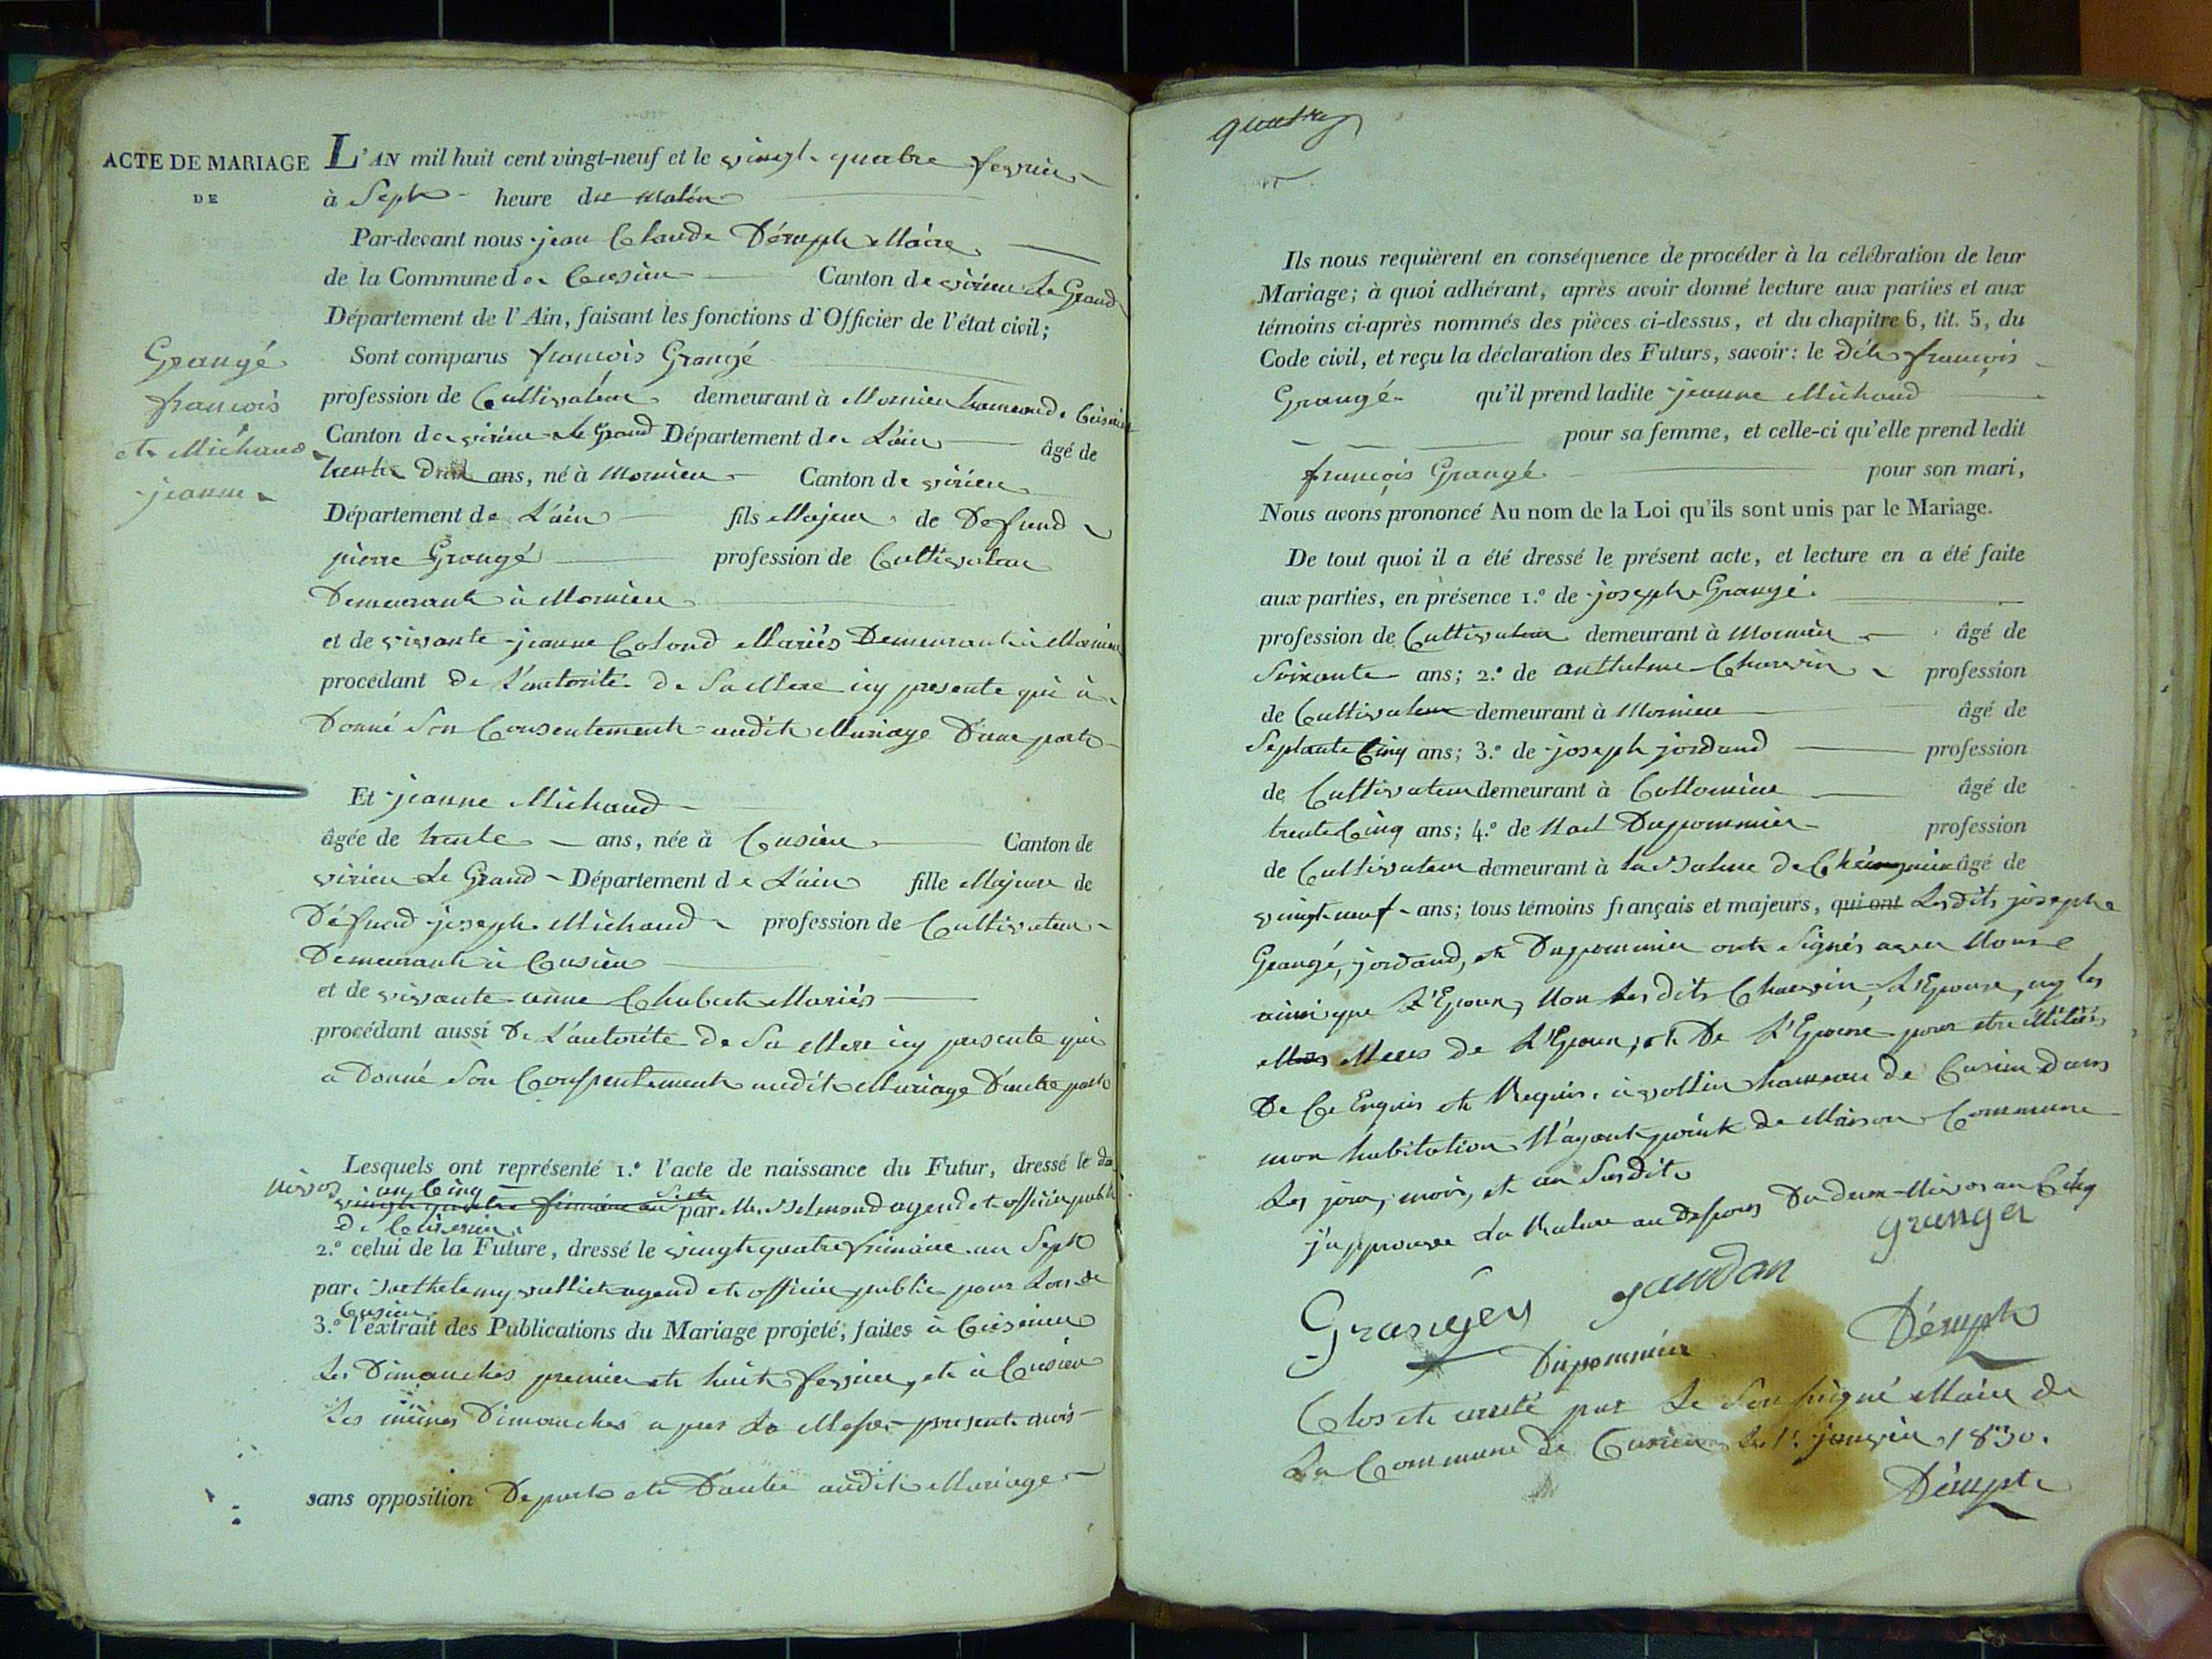 ACTE DE MARIAGE
DE
Grangé
francois
et Michaud
jeanne
L'AN mil huit cent vingt-neuf et le vingt quatre fevrier
à Sept heure du matin
Par-devant nous jean Claude Déruph Maire
de la Commune de Cusieu Canton de virieu Le Grand
Département de l'Ain, faisant les fonctions d'Officier de l'état civil;
Sont comparus françois Grangé
profession de Cultivateur demeurant à Mornieu hameau de Ceisérieu
Canton de virieu Le Grand Département de L'ain âgé de
trente ans, né à Mornieu Canton de virieu
Département de L'ain fils Majeur de Defund
pierre Grangé profession de Cultivateur
Demeurant à Mornieu
et de vivante jeanne Colond Mariés Demeurant à Mornieu
procédant De L'autorité De Sa Mere icy presente qui à
Donné Son Consentement audit Mariage D'une part
Et jeanne Michaud
âgée de trente ans, née à Cusieu Canton de
virieu Le Grand Département de L'ain fille Majeure de
Défund joseph Michaud profession de Cultivateur
Demeurant à Cusieu
et de vivante anne Chabert Mariés
procédant aussi De L'autorité De Sa Mere icy presente qui
a Donné Son Consentement audit Mariage D'autre part
Lesquels ont représenté 1.º l'acte de naissance du Futur, dressé le deux
nivos an Cinq
vingt quatre frimaire an Sept par Mr. agend et officier public
De Ceisérieu
2.º celui de la Future, dressé le vingt quatre frimaire an Sept
par Barthelemy agend et officier public pour Lors de
Cusieu
3.º l'extrait des Publications du Mariage projeté, faites à Ceisérieu
Les Dimanches premier et huit fevrier, et à Cusieu
Les mêmes Dimanches a pres La Messe present mois
sans opposition De part et D'autre audit Mariage
quatre
Ils nous requièrent en conséquence de procéder à la célébration de leur
Mariage; à quoi adhérant, après avoir donné lecture aux parties et aux
témoins ci-après nommés des pièces ci-dessus, et du chapitre 6, tit. 5, du
Code civil, et reçu la déclaration des Futurs, savoir: le dit françois
Grangé qu'il prend ladite jeanne Michaud
pour sa femme, et celle-ci qu'elle prend ledit
françois Grangé pour son mari,
Nous avons prononcé Au nom de la Loi qu'ils sont unis par le Mariage.
De tout quoi il a été dressé le présent acte, et lecture en a été faite
aux parties, en présence 1.º de joseph Grangé
profession de Cultivateur demeurant à Mornieu âgé de
Soixante ans; 2.º de anthelme Charvin profession
de Cultivateur demeurant à Mornieu âgé de
Septante Cinq ans; 3.º de joseph jordand profession
de Cultivateur demeurant à Collomieu âgé de
trente Cinq ans; 4.º de Noel Dupommier profession
de Cultivateur demeurant à la Balme De âgé de
vingt neuf ans; tous témoins français et majeurs, qui ont Lesdits joseph
Grangé, jordand, et Dupommier ont Signés avec Nous
ainsi que L'Epoux, Non Lesdits Charvin, L'Epouse, ny les
Meres de L'Epoux, et De L'Epouse pour etre illitéres
De Ce Enquis et Requis. à vollien hameau de Cusieu dans
mon habitation N'ayant point de Maison Commune
Les jour, mois, et an Susdit
j'approuve La Rature au Dessous Du deux Nivos an Cinq
granger
Granger jaurdan
Dupommier Déruph
Clos et arreté par Le Soussigné Maire de
La Commune De Cusieu Le 1er janvier 1830.
Déruph